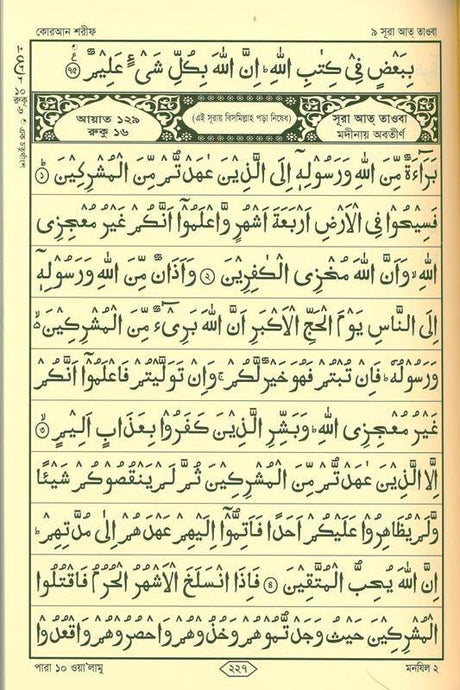 কোরআন শরীফ
৯ সূরা আত্ তাওবা
بِبَعْضٍ فِيْ كِتٰبِ اللّٰهِ ؕ اِنَّ اللّٰهَ بِكُلِّ شَيْءٍ عَلِيْمٌ ۝৭৫
আয়াত ১২৯
রুকু ১৬
(এই সূরায় বিসমিল্লাহ পড়া নিষেধ)
সূরা আত্ তাওবা
মদীনায় অবতীর্ণ
بَرَآءَةٌ مِّنَ اللّٰهِ وَرَسُوْلِهٖٓ اِلَى الَّذِيْنَ عٰهَدْتُّمْ مِّنَ الْمُشْرِكِيْنَ ؕ ১
فَسِيْحُوْا فِي الْاَرْضِ اَرْبَعَةَ اَشْهُرٍ وَّاعْلَمُوْٓا اَنَّكُمْ غَيْرُ مُعْجِزِي
اللّٰهِ ۙ وَاَنَّ اللّٰهَ مُخْزِي الْكٰفِرِيْنَ ২ وَاَذَانٌ مِّنَ اللّٰهِ وَرَسُوْلِهٖٓ
اِلَى النَّاسِ يَوْمَ الْحَجِّ الْاَكْبَرِ اَنَّ اللّٰهَ بَرِيْٓءٌ مِّنَ الْمُشْرِكِيْنَ ۙ
وَرَسُوْلُهٗ ؕ فَاِنْ تُبْتُمْ فَهُوَ خَيْرٌ لَّكُمْ ۚ وَاِنْ تَوَلَّيْتُمْ فَاعْلَمُوْٓا اَنَّكُمْ
غَيْرُ مُعْجِزِي اللّٰهِ ؕ وَبَشِّرِ الَّذِيْنَ كَفَرُوْا بِعَذَابٍ اَلِيْمٍ ۙ ৩
اِلَّا الَّذِيْنَ عٰهَدْتُّمْ مِّنَ الْمُشْرِكِيْنَ ثُمَّ لَمْ يَنْقُصُوْكُمْ شَيْـًٔا
وَّلَمْ يُظَاهِرُوْا عَلَيْكُمْ اَحَدًا فَاَتِمُّوْٓا اِلَيْهِمْ عَهْدَهُمْ اِلٰى مُدَّتِهِمْ ؕ
اِنَّ اللّٰهَ يُحِبُّ الْمُتَّقِيْنَ ৪ فَاِذَا انْسَلَخَ الْاَشْهُرُ الْحُرُمُ فَاقْتُلُوا
الْمُشْرِكِيْنَ حَيْثُ وَجَدْتُّمُوْهُمْ وَخُذُوْهُمْ وَاحْصُرُوْهُمْ وَاقْعُدُوْا
পারা ১০ ওয়া'লামু
২২৭
মনযিল ২